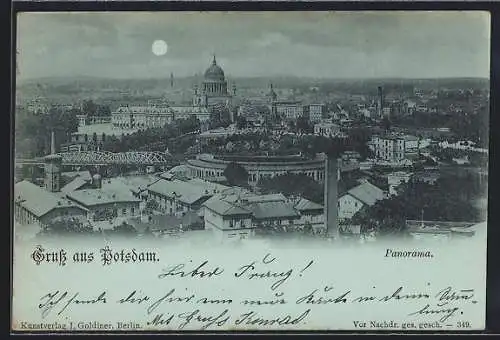 Gruß aus Potsdam.
Panorama.
Lieber Franz!
Ich sende dir hier eine neue Karte in deine Samm-
lung.
Mit Gruß Konrad.
Kunstverlag J. Goldiner, Berlin.
Vor Nachdr. ges. gesch. — 349.